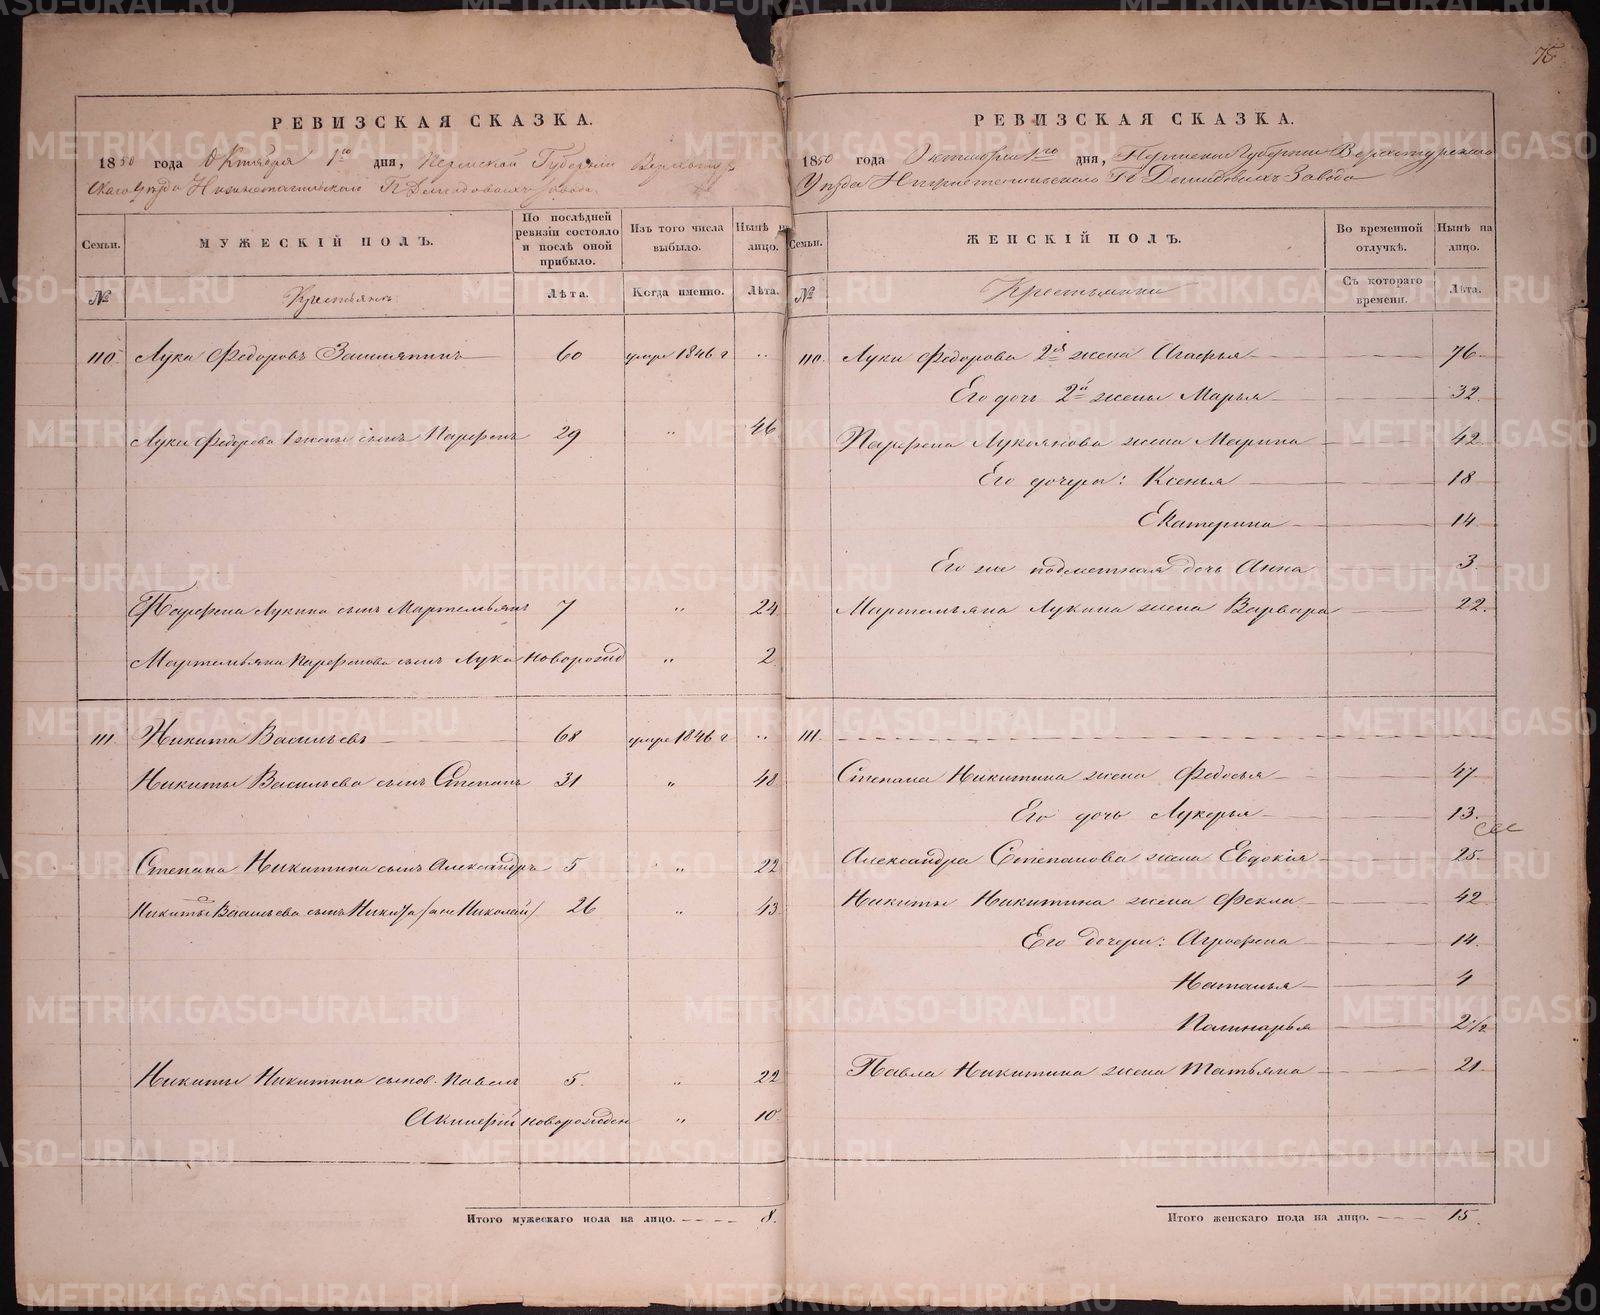 75
РЕВИЗСКАЯ СКАЗКА.
1850 года Октября 1го дня, Пермской Губерніи Верхотур
скаго Уѣзда Нижнетагильскаго Гг. Демидовыхъ завода
Семьи.
МУЖЕСКІЙ ПОЛЪ.
По послѣдней ревизіи состояло и послѣ оной прибыло.
Изъ того числа выбыло.
Нынѣ на лицо.
№
Крестьянъ
Лѣта.
Когда именно.
Лѣта.
110. Лука Федоровъ 60 умре 1846 г ..
Луки Федорова 1 жены сынъ Парфенъ 29 " 46
Парфена Лукина сынъ Мартемьянъ 7 " 24
Мартемьяна Парфенова сынъ Лука новорожд " 2
111. Никита Васильевъ 68 умре 1846 г ..
Никиты Васильева сынъ Степанъ 31 " 48
Степана Никитина сынъ Александръ 5 " 22
Никиты Васильева сынъ Никита /он же Николай/ 26 " 43
Никиты Никитина сынов. Павелъ 5. " 22
Акинфій новорожден " 10
Итого мужескаго пола на лицо. 8.
РЕВИЗСКАЯ СКАЗКА.
1850 года Октября 1го дня, Пермской Губерніи Верхотурскаго
Уѣзда Нижнетагильскаго Гг. Демидовыхъ Завода
Семьи.
ЖЕНСКІЙ ПОЛЪ.
Во временной отлучкѣ.
Нынѣ на лицо.
№
Крестьянки
Съ котораго времени.
Лѣта.
110. Луки Федорова 2я жена Агафья 76
Его дочь 2й жены Марья 32
Парфена Лукоянова жена Марина 42
Его дочери: Ксенья 18
Екатерина 14
Его же подметная дочь Анна 3
Мартемьяна Лукина жена Варвара 22.
111.
Степана Никитина жена Федосья 47
Его дочь Лукерья 13.
Александра Степанова жена Евдокія 25.
Никиты Никитина жена Фекла 42
Его дочери: Аграфена 14
Наталья 4
Полинарья 2 1/2
Павла Никитина жена Татьяна 21
Итого женскаго пола на лицо. 15.